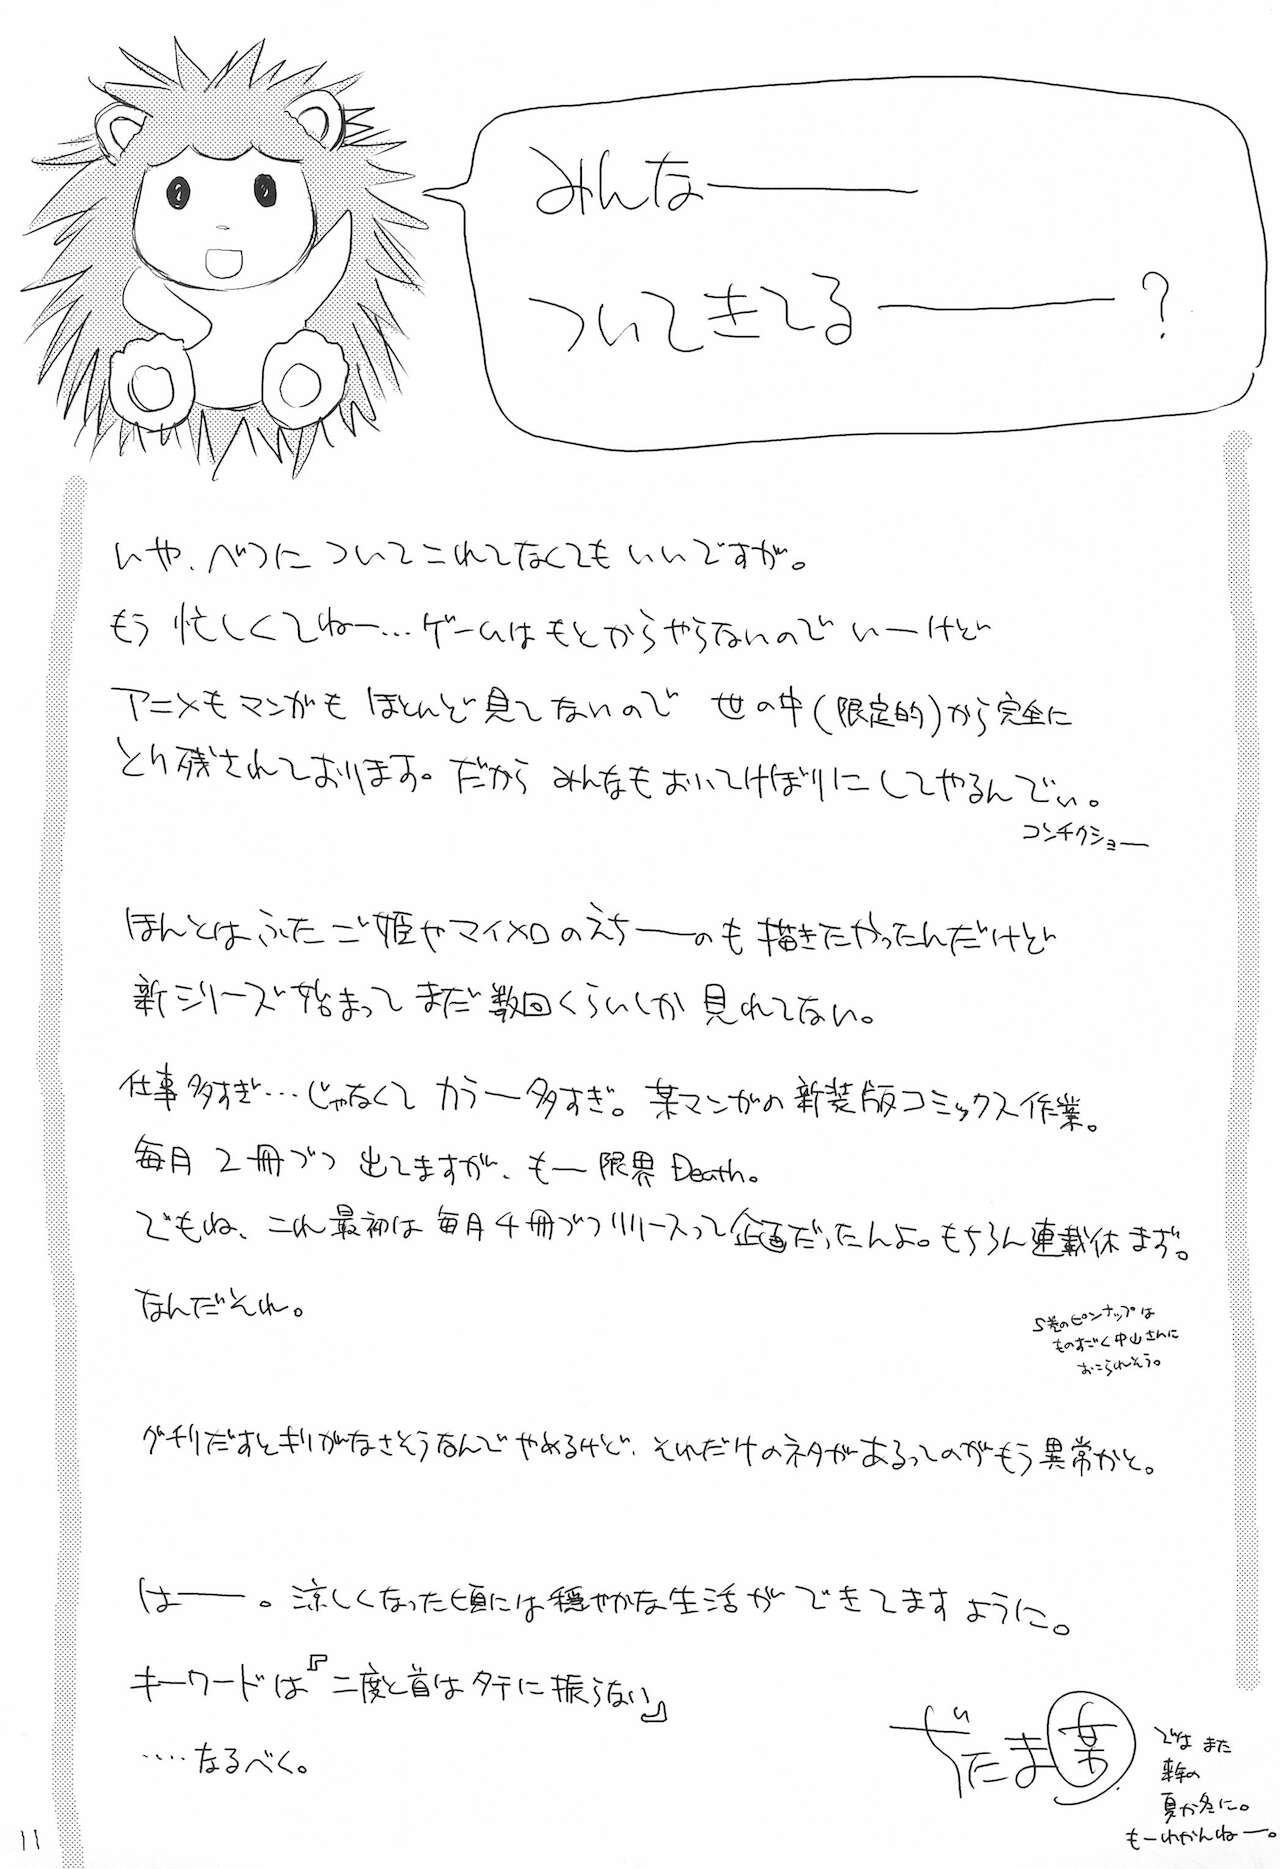 みんなーー
ついてきてるーー?
いや、べつについてこれてなくてもいいですが。
もう忙しくてねー…ゲームはもとからやらないのでいーけど
アニメもマンガもほとんど見てないので 世の中(限定的)から完全に
とり残されております。だからみんなもおいてけぼりにしてやるんでぃ。
コンチクショー
ほんとはふたご姫やマイメロのえちーーのも描きたかったんだけど
新シリーズ始まってまだ数回くらいしか見れてない。
仕事多すぎ…じゃなくてカラー多すぎ。某マンガの新装版コミックス作業。
毎月2冊づつ出てますが、もー限界Death。
でもね、これ最初は毎月4冊づつリリースって企画だったんよ。もちろん連載休まず。
なんだそれ。
5巻のピンナップは
ものすごく中山さんに
おこられそう。
グチりだすとキリがなさそうなんでやめるけど、それだけのネタがあるってのがもう異常かと。
はーー。涼しくなった頃には穏やかな生活ができてますように。
キーワードは『二度と首はタテに振らない』
‥‥なるべく。
ぢたま(某)
ではまた
来年の
夏か冬に。
もーわかんねー。
11